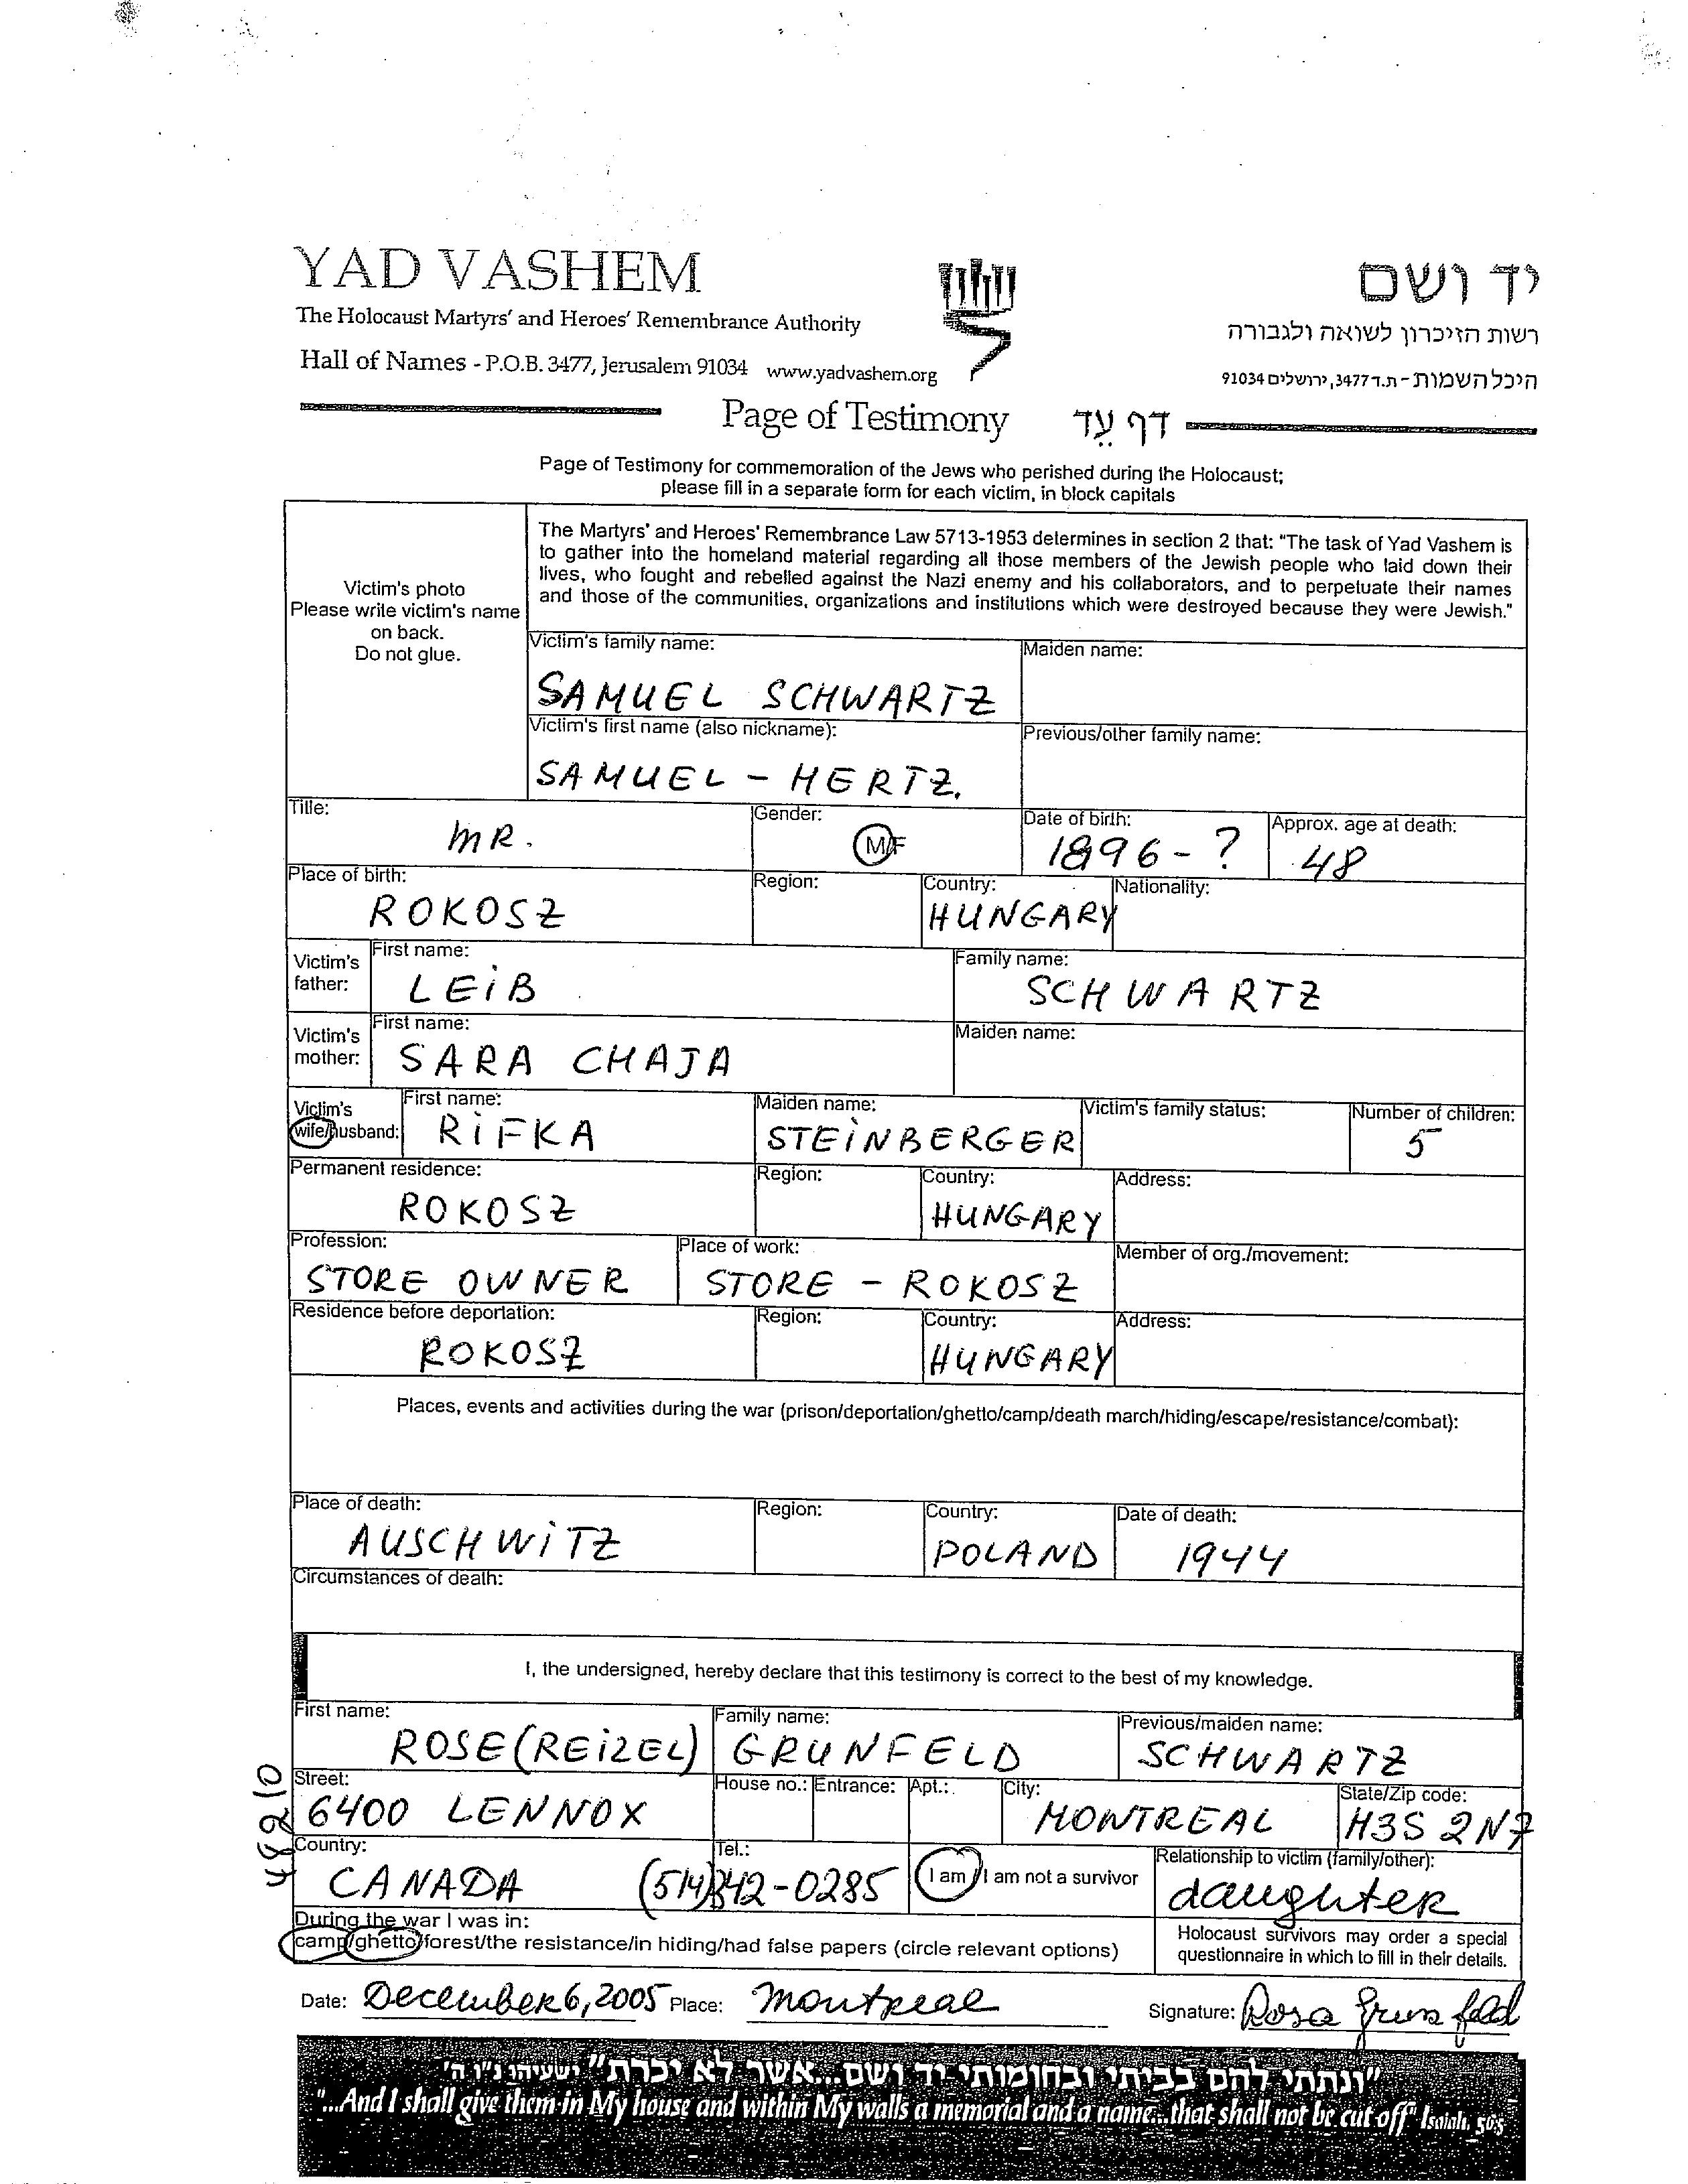 YAD VASHEM
יד ושם
The Holocaust Martyrs' and Heroes' Remembrance Authority
רשות הזיכרון לשואה ולגבורה
Hall of Names - P.O.B. 3477, Jerusalem 91034 www.yadvashem.org
היכל השמות - ת.ד 3477, ירושלים 91034
Page of Testimony דף עֵד
Page of Testimony for commemoration of the Jews who perished during the Holocaust;
please fill in a separate form for each victim, in block capitals
Victim's photo
Please write victim's name
on back.
Do not glue.
The Martyrs' and Heroes' Remembrance Law 5713-1953 determines in section 2 that: "The task of Yad Vashem is
to gather into the homeland material regarding all those members of the Jewish people who laid down their
lives, who fought and rebelled against the Nazi enemy and his collaborators, and to perpetuate their names
and those of the communities, organizations and institutions which were destroyed because they were Jewish."
Victim's family name: Maiden name:
SAMUEL SCHWARTZ
Victim's first name (also nickname): Previous/other family name:
SAMUEL - HERTZ.
Title: Gender: Date of birth: Approx. age at death:
MR. M/F 1896-? 48
Place of birth: Region: Country: Nationality:
ROKOSZ HUNGARY
Victim's father: First name: Family name:
LEiB SCHWARTZ
Victim's mother: First name: Maiden name:
SARA CHAJA
Victim's wife/husband: First name: Maiden name: Victim's family status: Number of children:
RiFKA STEiNBERGER 5
Permanent residence: Region: Country: Address:
ROKOSZ HUNGARY
Profession: Place of work: Member of org./movement:
STORE OWNER STORE - ROKOSZ
Residence before deportation: Region: Country: Address:
ROKOSZ HUNGARY
Places, events and activities during the war (prison/deportation/ghetto/camp/death march/hiding/escape/resistance/combat):
Place of death: Region: Country: Date of death:
AUSCHWiTZ POLAND 1944
Circumstances of death:
I, the undersigned, hereby declare that this testimony is correct to the best of my knowledge.
First name: Family name: Previous/maiden name:
ROSE (REiZEL) GRUNFELD SCHWARTZ
Street: House no.: Entrance: Apt.: City: State/Zip code:
6400 LENNOX MONTREAL H3S 2N7
Country: Tel.: I am / I am not a survivor Relationship to victim (family/other):
CANADA (514) 342-0285 daughter
48210
During the war I was in:
camp/ghetto/forest/the resistance/in hiding/had false papers (circle relevant options)
Holocaust survivors may order a special
questionnaire in which to fill in their details.
Date: December 6, 2005 Place: Montreal Signature: Rosa Grunfeld
"ונתתי להם בביתי ובחומותי יד ושם...אשר לא יכרת" ישעיהו נ"ו ה'
"...And I shall give them in My house and within My walls a memorial and a name...that shall not be cut off" Isaiah, 56:5